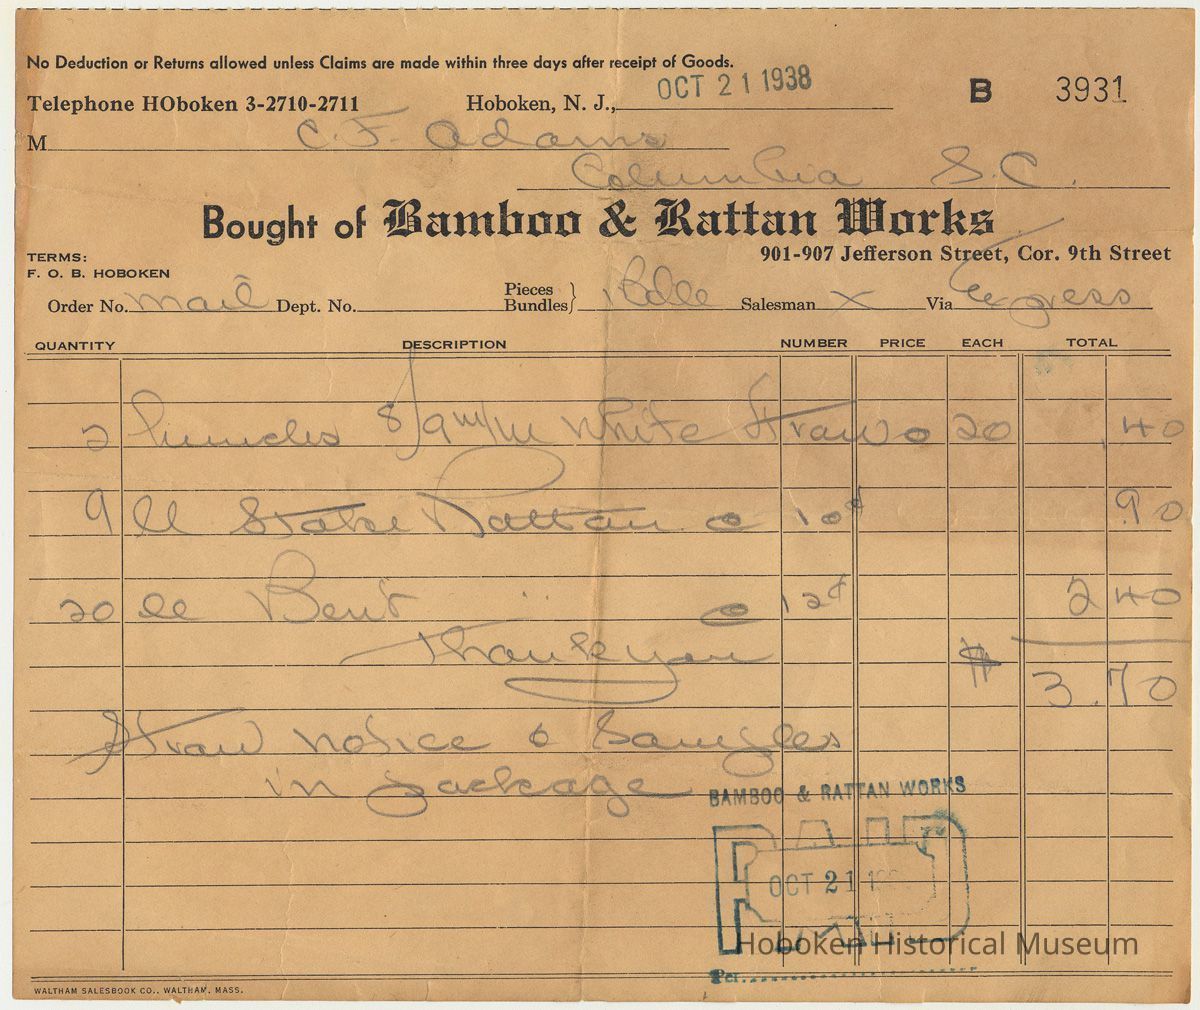 No Deduction or Returns allowed unless Claims are made within three days after receipt of Goods.
Telephone HOboken 3-2710-2711 Hoboken, N. J., OCT 21 1938 B 3931
M C. F. Adams
Columbia S.C.
Bought of Bamboo & Rattan Works
901-907 Jefferson Street, Cor. 9th Street
TERMS:
F. O. B. HOBOKEN
Order No. Mail Dept. No. Pieces Bundles} Salesman X Via Express
QUANTITY DESCRIPTION NUMBER PRICE EACH TOTAL
2 8/9 m/m White Straw @ 20 .40
9 ll Stake Rattan @ 10¢ .90
20 ll Bent " @ 12¢ 2 40
Thank you $ 3.70
Straw notice & Samples
in package
BAMBOO & RATTAN WORKS
PAID
OCT 21
Per
Hoboken Historical Museum
WALTHAM SALESBOOK CO., WALTHAM, MASS.